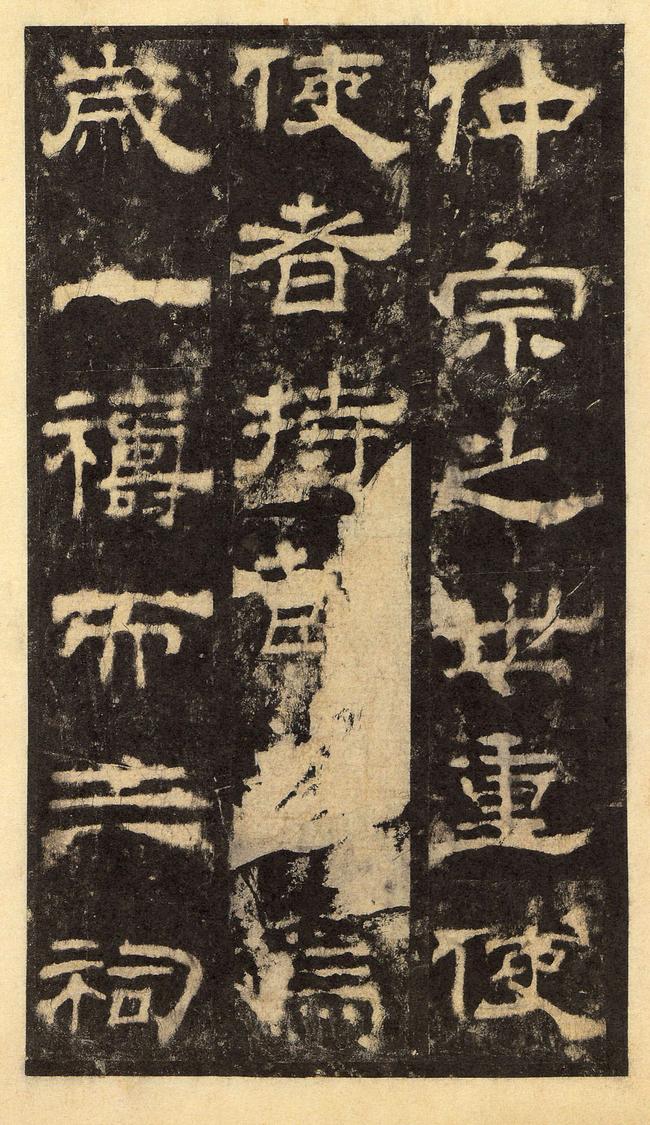 仲宗之世重使
使者持焉
歲一禱而三祠